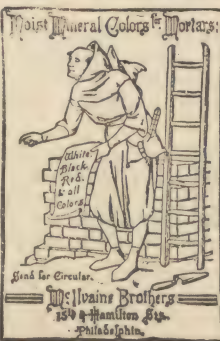 Moist Mineral Colors for Mortars:
White.
Black.
Red.
& all
Colors
Send for Circular.
McIlvaine Brothers
Hamilton Sts.
Philadelphia.